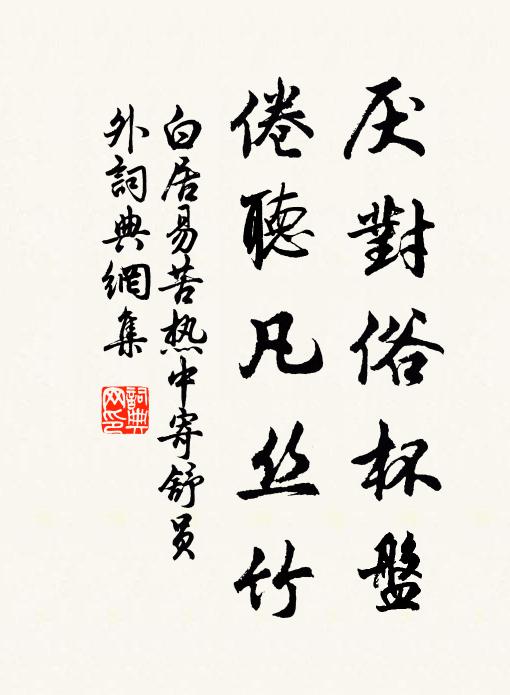 厌對俗杯盤
倦聽凡丝竹
白居易苦热中寄舒员
外詞典網集
詞典
网印